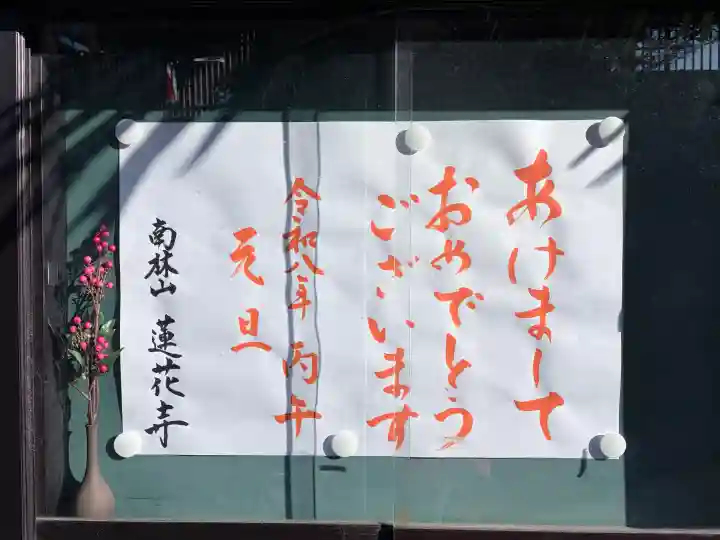 あけまして
おめでとう
ございます
令和八年 丙午
元旦
南林山 蓮花寺